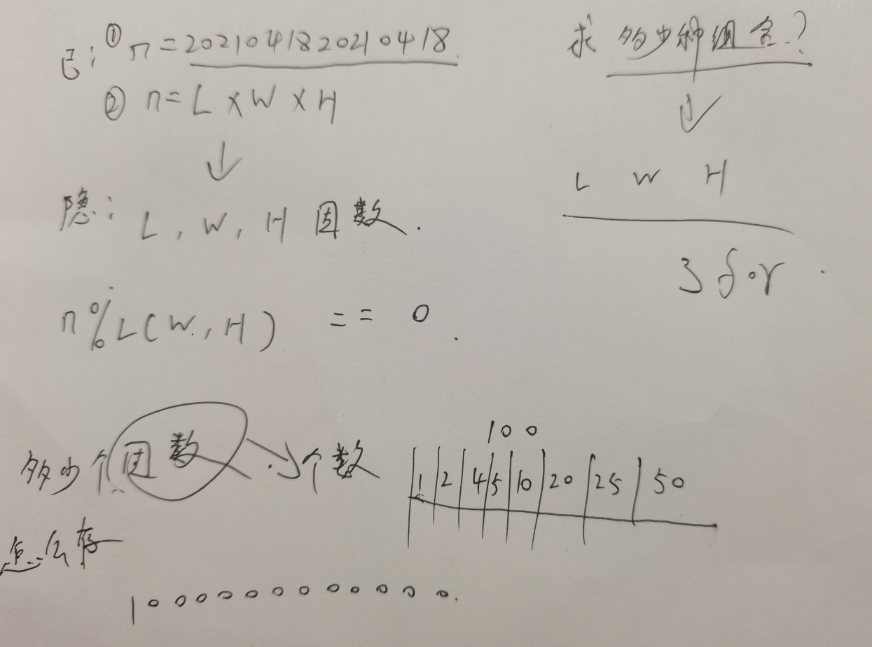 已: ① n=2021041820210418
② n=L×W×H
↓
隐: L, W, H 因数.
n%L(W,H) == 0.
求 多少种组合.?
↓
L W H
3 for
多少个因数 → 个数
怎么存
100
1 | 2 | 4 | 5 | 10 | 20 | 25 | 50
1000000000000.